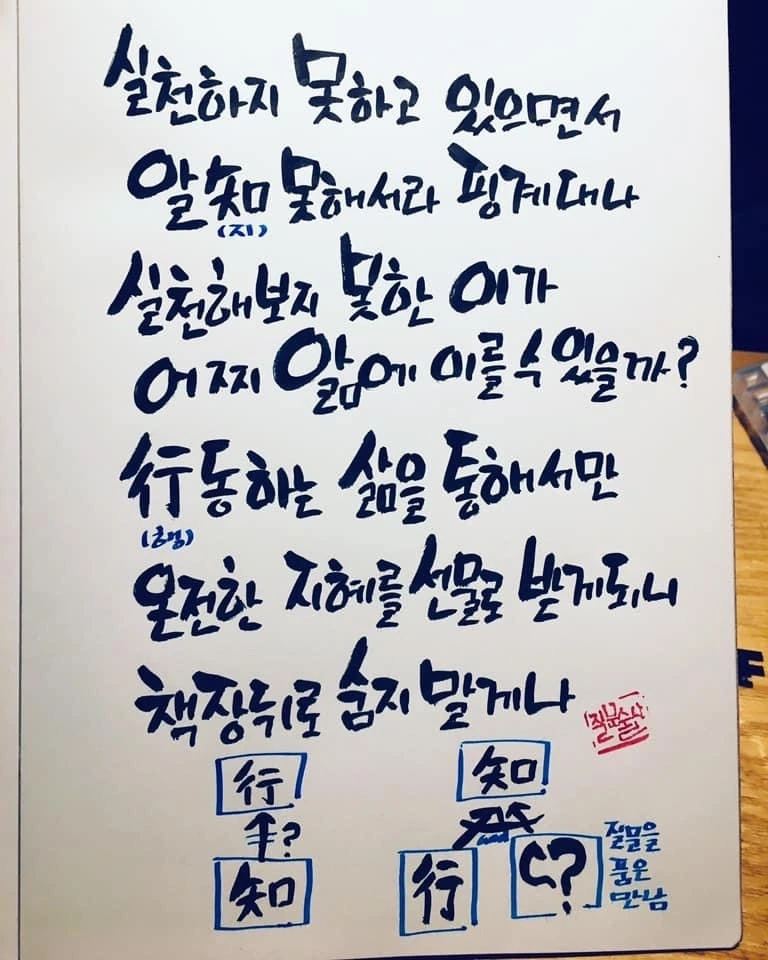 실천하지 못하고 있으면서
알知못해서라 핑계대나
(지)
실천해보지 못한 이가
어찌 앎에 이를 수 있을까?
行동하는 삶을 통해서만
(행)
온전한 지혜를 선물로 받게되니
책장뒤로 숨지 말게나
질문술사
行
?
知
知
行
?
질문을
품은
만남